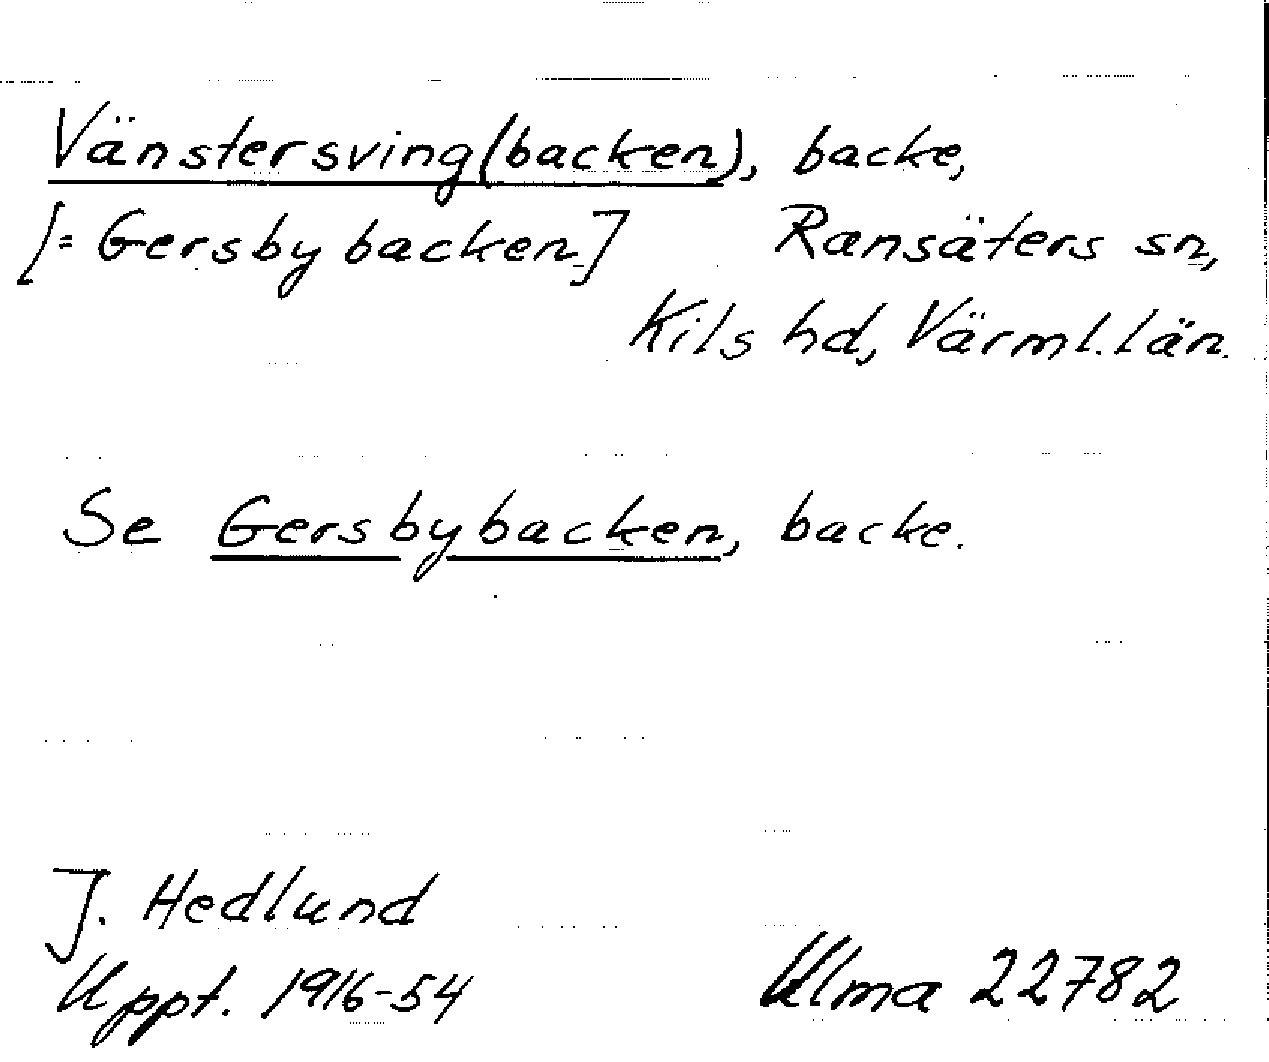 Vänstersving(backen), backe,
[= Gersbybacken] Ransäters sn,
Kils hd, Värml. län.
Se Gersbybacken, backe.
J. Hedlund
Uppt. 1916-54 Ulma 22782